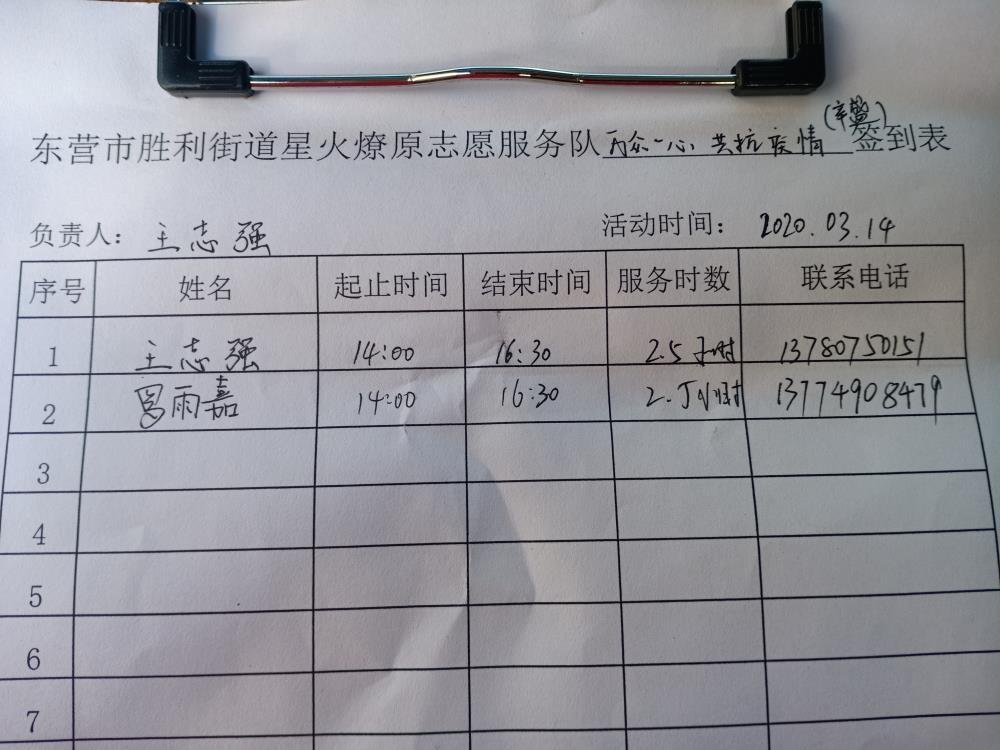 (辛盤)
东营市胜利街道星火燎原志愿服务队万众一心 共抗疫情签到表
负责人: 王志强 活动时间: 2020.03.14
序号 姓名 起止时间 结束时间 服务时数 联系电话
1 王志强 14:00 16:30 2.5小时 13780750151
2 吕雨嘉 14:00 16:30 2.5小时 13774908479
3
4
5
6
7